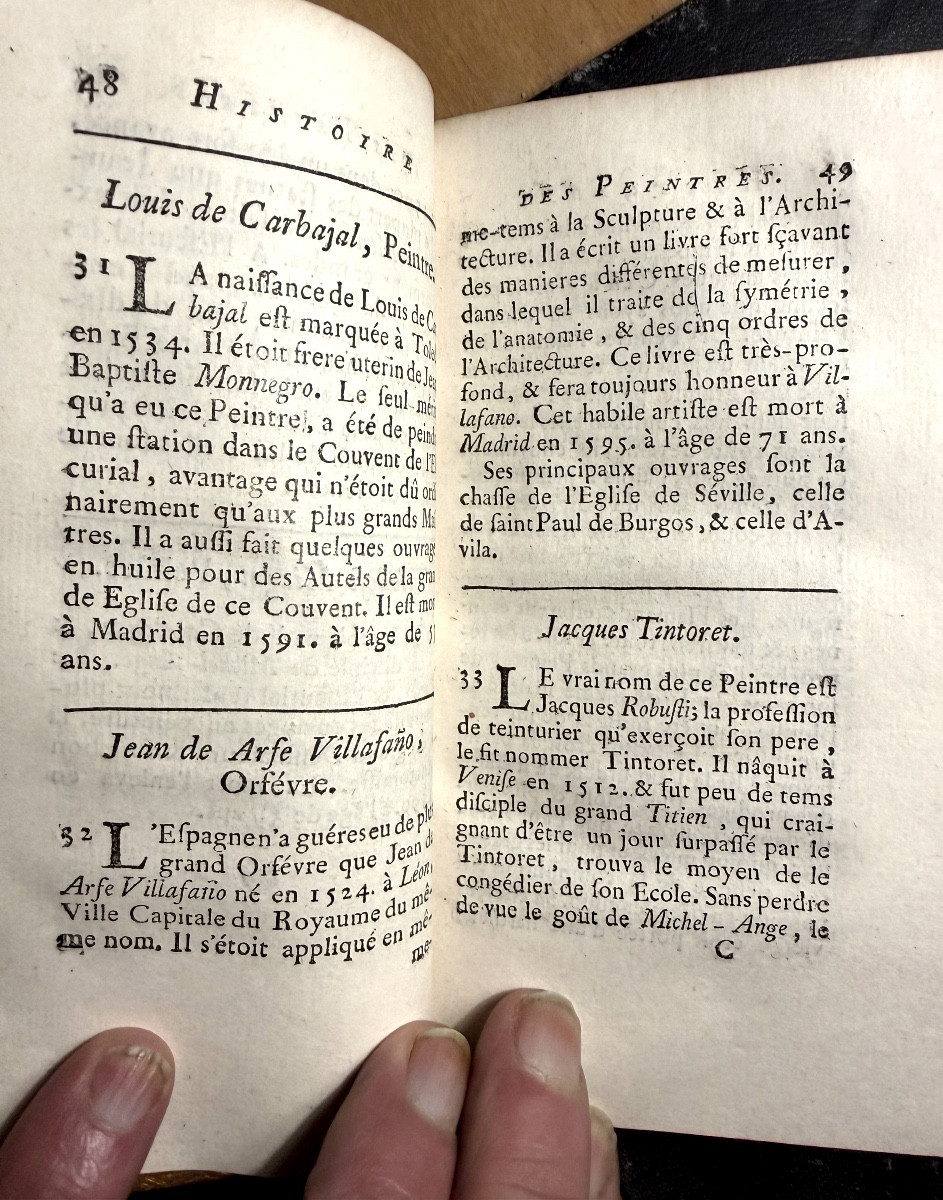 48 HISTOIRE
Louis de Carbajal, Peintre.
31 LA naiſſance de Louis de
bajal eſt marquée à
en 1534. Il étoit frere uterin de
Baptiſte Monnegro. Le ſeul
qu'a eu ce Peintre, a été de
une ſtation dans le Couvent de
curial, avantage qui n'étoit dû
nairement qu'aux plus grands
tres. Il a auſſi fait quelques
en huile pour des Autels de la
de Egliſe de ce Couvent. Il eſt
à Madrid en 1591. à l'âge de
ans.
Jean de Arfe Villafaño,
Orfévre.
32 L'Eſpagne n'a guéres eu de
grand Orfévre que Jean de
Arfe Villafaño né en 1524. à Léon,
Ville Capitale du Royaume du mê-
me nom. Il s'étoit appliqué en mê-
me-
DES PEINTRES. 49
me-tems à la Sculpture & à l'Archi-
tecture. Il a écrit un livre fort ſçavant
des manieres différentes de meſurer,
dans lequel il traite de la ſymétrie,
de l'anatomie, & des cinq ordres de
l'Architecture. Ce livre eſt très-pro-
fond, & fera toujours honneur à Vil-
lafano. Cet habile artiſte eſt mort à
Madrid en 1595. à l'âge de 71 ans.
Ses principaux ouvrages ſont la
chaſſe de l'Egliſe de Séville, celle
de ſaint Paul de Burgos, & celle d'A-
vila.
Jacques Tintoret.
33 LE vrai nom de ce Peintre eſt
Jacques Robuſti; la profeſſion
de teinturier qu'exerçoit ſon pere,
le fit nommer Tintoret. Il nâquit à
Veniſe en 1512. & fut peu de tems
diſciple du grand Titien, qui crai-
gnant d'être un jour ſurpaſſé par le
Tintoret, trouva le moyen de le
congédier de ſon Ecole. Sans perdre
de vue le goût de Michel-Ange, le
C